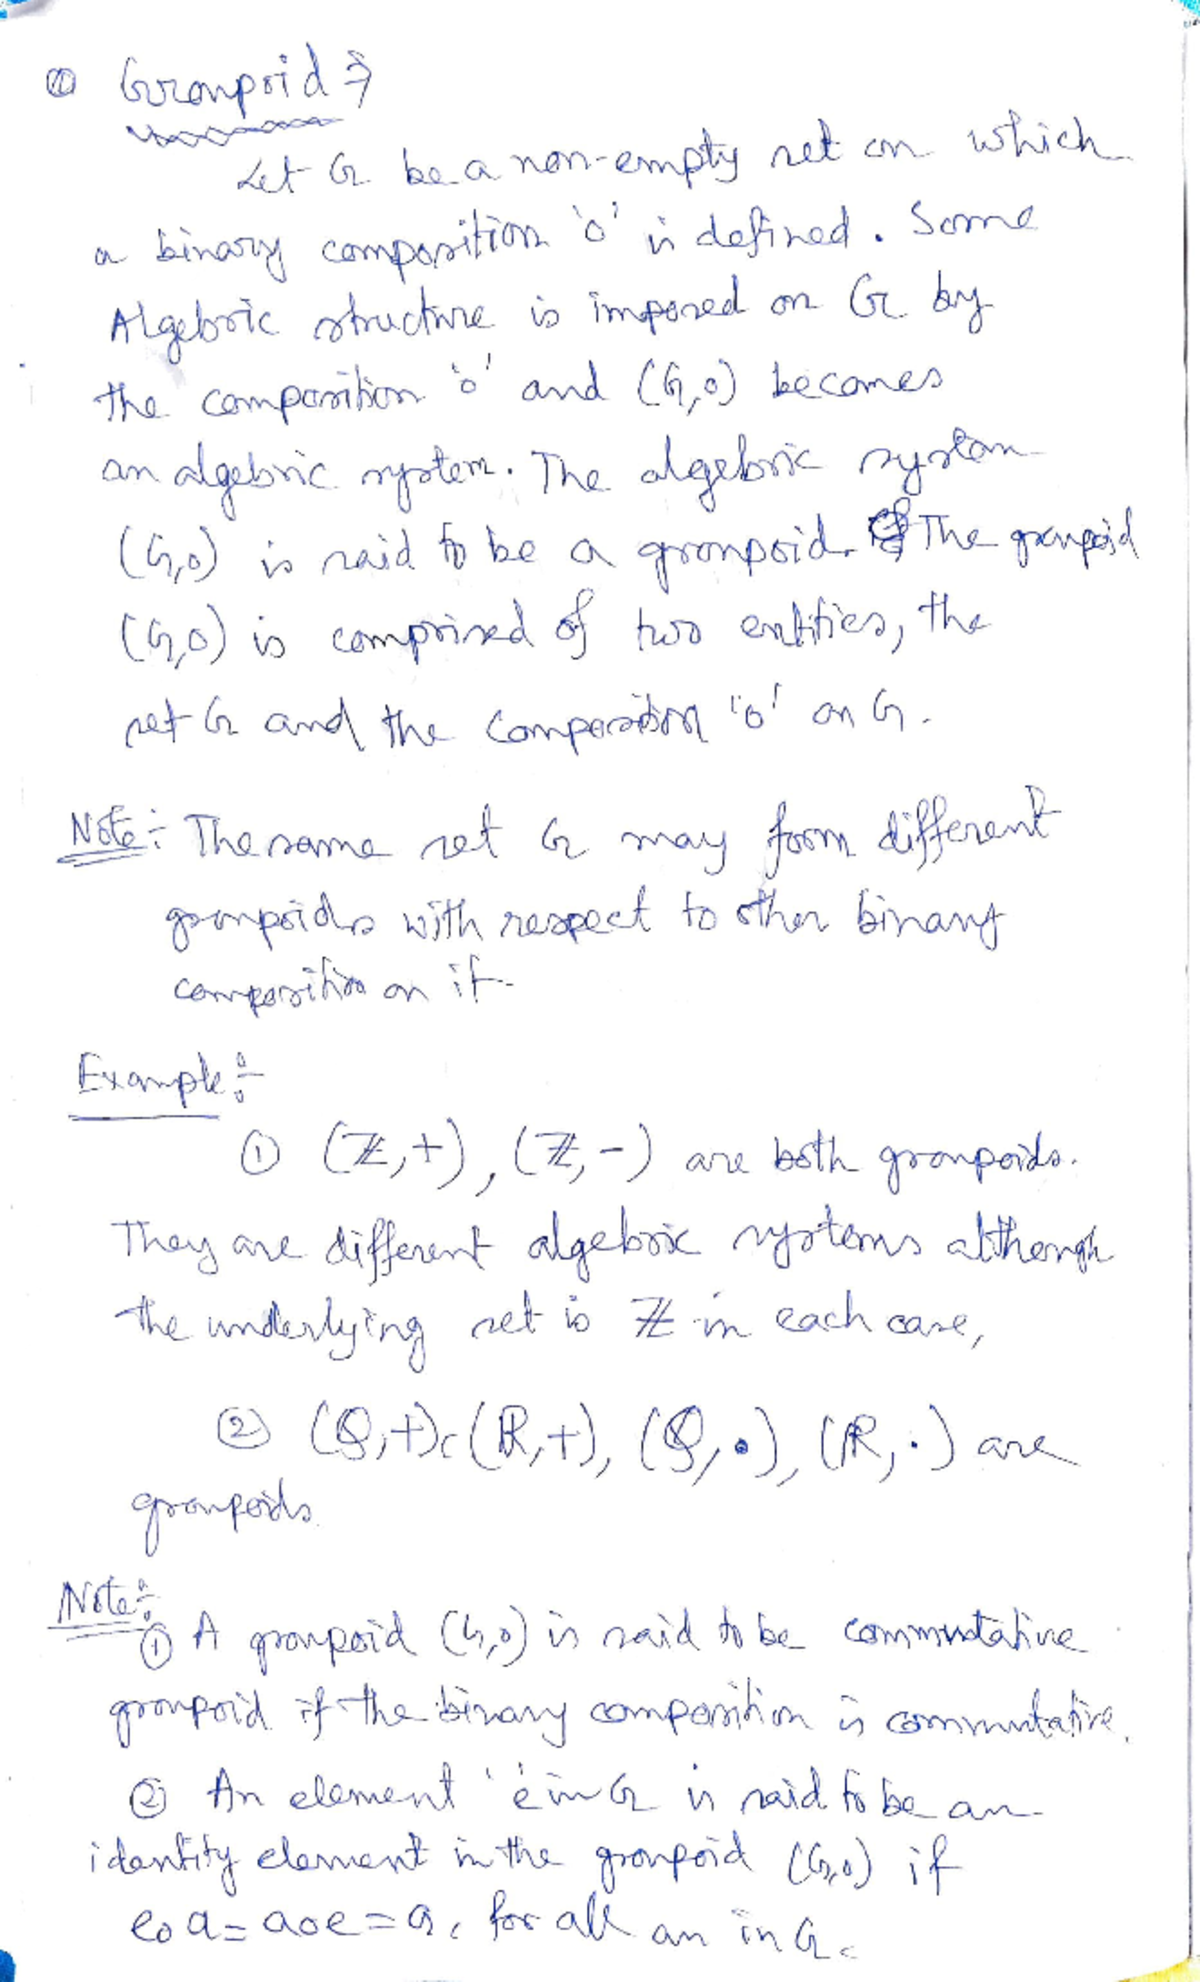 ① Groupoid ⇒
Let G be a non-empty set on which
a binary composition 'o' is defined. Some
Algebric structure is imposed on G by
the composition 'o' and (G,o) becomes
an algebric system. The algebric system
(G,o) is said to be a groupoid. The groupoid
(G,o) is comprised of two entities, the
set G and the composition 'o' on G.
Note:- The same set G may form different
groupoids with respect to other binary
composition on it.
Example:-
① (ℤ,+), (ℤ,-) are both groupoids.
They are different algebric systems although
the underlying set is ℤ in each case,
② (ℚ,+), (ℝ,+), (ℚ,•), (ℝ,·) are
groupoids.
Note:-
① A groupoid (G,o) is said to be commutative
groupoid if the binary composition is commutative.
② An element 'e' in G is said to be an
identity element in the groupoid (G,o) if
eoa = aoe = a, for all an in G.